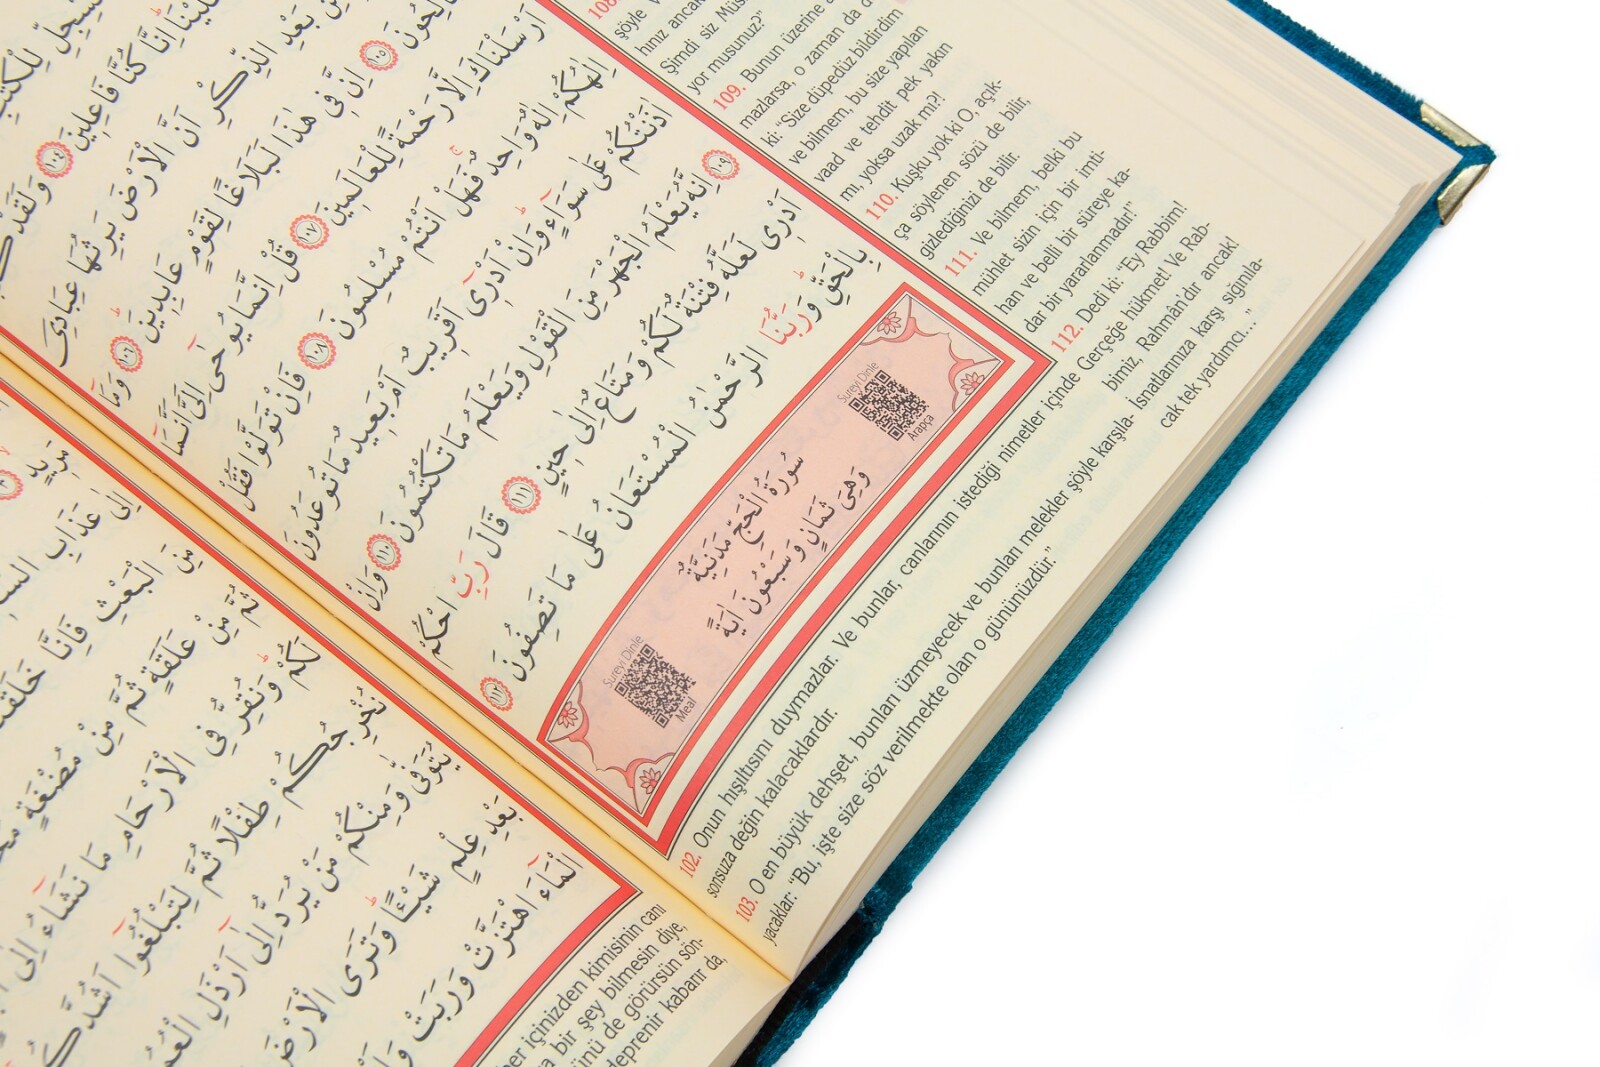 لِلْكُتُبِ
اِنَّا كُنَّا فَاعِلِينَ ١٠٤ وَلَقَدْ
مِنْ بَعْدِ الذِّكْرِ اَنَّ الْاَرْضَ يَرِثُهَا عِبَادِىَ
١٠٥ اِنَّ فِى هٰذَا لَبَلَاغًا لِقَوْمٍ عَابِدِينَ ١٠٦ وَمَٓا
اَرْسَلْنَاكَ اِلَّا رَحْمَةً لِلْعَالَمِينَ ١٠٧ قُلْ اِنَّمَا يُوحٰٓى اِلَىَّ اَنَّمَٓا
اِلٰهُكُمْ اِلٰهٌ وَاحِدٌ فَهَلْ اَنْتُمْ مُسْلِمُونَ ١٠٨ فَاِنْ تَوَلَّوْا فَقُلْ
اٰذَنْتُكُمْ عَلٰى سَوَٓاءٍ وَاِنْ اَدْرِٓى اَقَرِيبٌ اَمْ بَعِيدٌ مَا تُوعَدُونَ
١٠٩ اِنَّهُ يَعْلَمُ الْجَهْرَ مِنَ الْقَوْلِ وَيَعْلَمُ مَا تَكْتُمُونَ ١١٠ وَاِنْ
اَدْرِى لَعَلَّهُ فِتْنَةٌ لَكُمْ وَمَتَاعٌ اِلٰى حِينٍ ١١١ قَالَ رَبِّ احْكُمْ
بِالْحَقِّ وَرَبُّنَا الرَّحْمٰنُ الْمُسْتَعَانُ عَلٰى مَا تَصِفُونَ ١١٢
Sureyi Dinle
Arapça
سُورَةُ الْحَجِّ مَدَنِيَّةٌ
وَهِىَ ثَمَانٍ وَسَبْعُونَ اٰيَةً
Sureyi Dinle
Meal
108.
şöyle
hınız ancak
Şimdi siz
yor musunuz?"
109. Bunun üzerine
mazlarsa, o zaman da
ki: "Size düpedüz bildirdim
ve bilmem, bu size yapılan
vaad ve tehdit pek yakın
mı, yoksa uzak mı?!
110. Kuşku yok ki O, açık-
ça söylenen sözü de bilir,
gizlediğinizi de bilir.
111. Ve bilmem, belki bu
mühlet sizin için bir imti-
han ve belli bir süreye ka-
dar bir yararlanmadır!"
112. Dedi ki: "Ey Rabbim!
Gerçeğe hükmet! Ve Rab-
bimiz, Rahmân'dır ancak!
İsnatlarınıza karşı sığınıla-
cak tek yardımcı..."
102. Onun hışıltısını duymazlar. Ve bunlar, canlarının istediği nimetler içinde
sonsuza değin kalacaklardır.
103. O en büyük dehşet, bunları üzmeyecek ve bunları melekler şöyle karşıla-
yacaklar: "Bu, işte size söz verilmekte olan o gününüzdür."
مَرِيدٍ
اِلٰى عَذَابِ
مِنَ الْبَعْثِ فَاِنَّا
ثُمَّ مِنْ عَلَقَةٍ ثُمَّ مِنْ مُضْغَةٍ
لَكُمْ وَنُقِرُّ فِى الْاَرْحَامِ مَا نَشَٓاءُ اِلٰٓى
نُخْرِجُكُمْ طِفْلًا ثُمَّ لِتَبْلُغُٓوا اَشُدَّكُمْ
يُتَوَفّٰى وَمِنْكُمْ مَنْ يُرَدُّ اِلٰٓى اَرْذَلِ الْعُمُرِ
بَعْدِ عِلْمٍ شَيْـًٔا وَتَرَى الْاَرْضَ
الْمَٓاءَ اهْتَزَّتْ وَرَبَتْ
içinizden kimisinin canı
bir şey bilmesin diye,
de görürsün sön-
deprenir kabarır da,